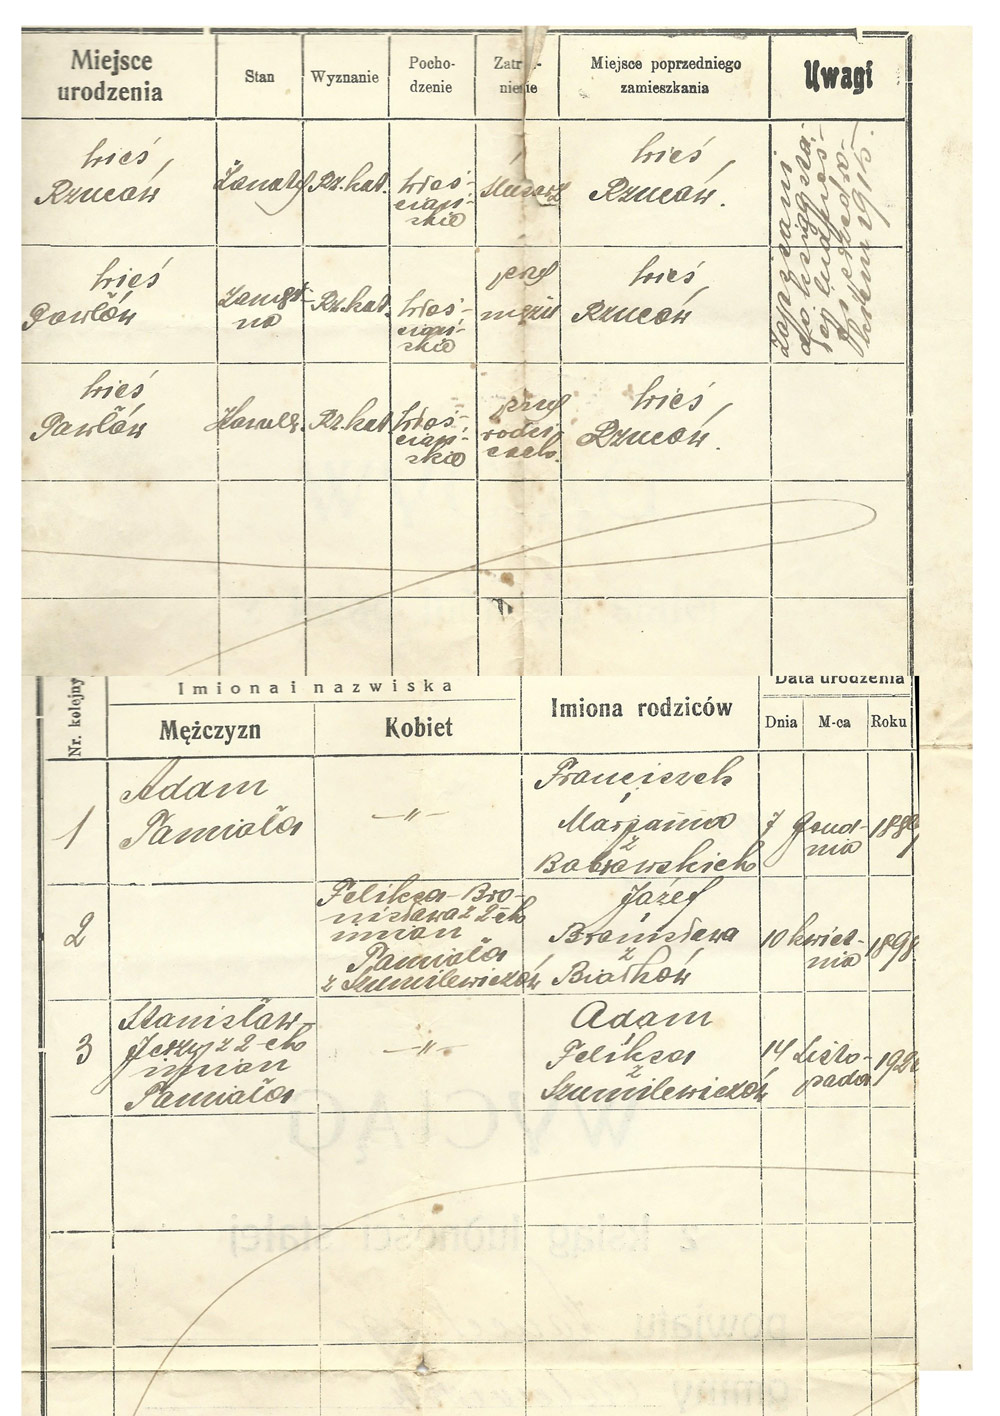 Miejsce urodzenia
Stan
Wyznanie
Pocho-
dzenie
Zatr-
nienie
Miejsce poprzedniego
zamieszkania
Uwagi
wieś
Rzuców
Żonaty
Rz.kat.
włoś-
ciań-
skie
Ślusarz
wieś,
Rzuców.
Zapisani
do ksiąg sta-
łej ludności
wieś
Pawłów
Zamęż-
na
Rz.kat.
włoś-
ciań-
skie
przy
mężu
wieś,
Rzuców
wieś
Pawłów
Kawaler.
Rz.kat
włoś-
ciań-
skie
przy
rodzi-
cach.
wieś,
Rzuców.
Nr. kolejny
Imiona i nazwiska
Mężczyzn
Kobiet
Imiona rodziców
Data urodzenia
Dnia
M-ca
Roku
1
Adam
Pamiała
-"-
Franciszek
i
Marjanna
z
Bobrowskich
7
Grud-
nia
2
Feliksa-Bro-
nisława z 2-ch
imion
Pamiała
z Szumilewiczów
Józef
i
Bronisława
z
Białków
10
kwiet-
nia
1898
3
Stanisław-
Jerzy z 2-ch
imion
Pamiała
-"-
Adam
i
Feliksa
z
Szumilewiczów
14
Listo-
pada
WYCIĄG
z ksiąg ludności stałej
powiatu
gminy